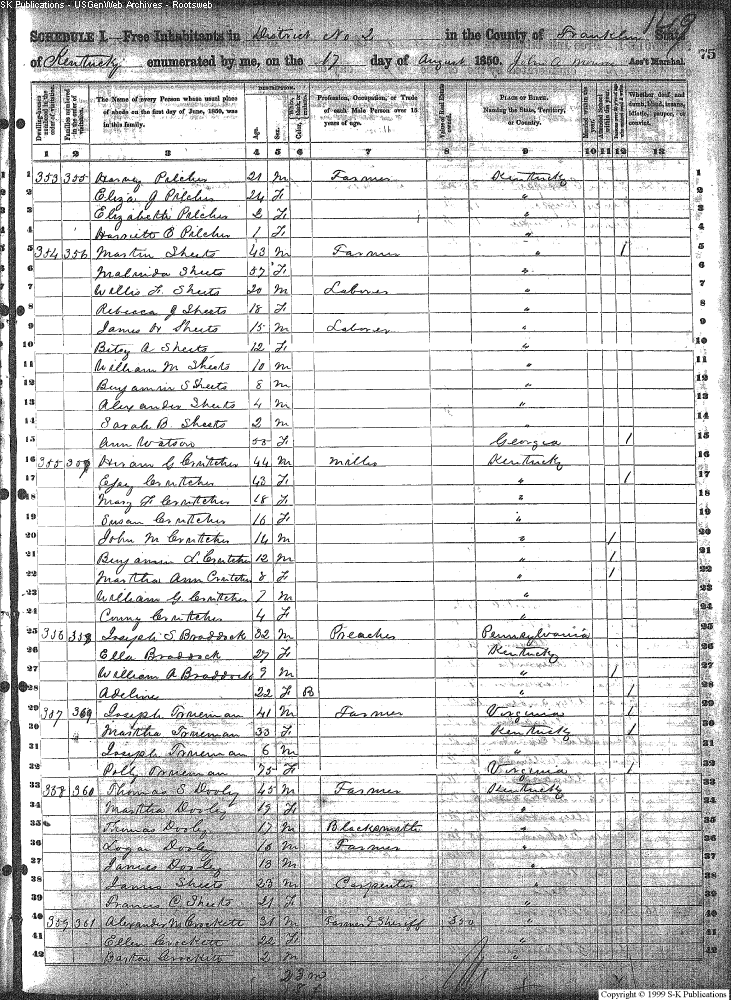 S-K Publications - USGenWeb Archives - Rootsweb
1149
SCHEDULE I.—Free Inhabitants in District No 2 in the County of Franklin State
of Kentucky enumerated by me, on the 17 day of August 1850. Ass't Marshal.
75
DESCRIPTION.
Dwelling-houses numbered in the order of visitation.
Families numbered in the order of visitation.
The Name of every Person whose usual place of abode on the first day of June, 1850, was in this family.
Age.
Sex.
Profession, Occupation, or Trade of each Male Person over 15 years of age.
Value of Real Estate owned.
PLACE OF BIRTH. Naming the State, Territory, or Country.
Married within the year.
Attended School within the year.
Whether deaf and dumb, blind, insane, idiotic, pauper, or convict.
1 2 3 4 5 6 7 8 9 10 11 12 13
1 353 355 Harvey Pilcher 21 M Farmer Kentucky 1
2 Eliza J Pilcher 24 F " 2
3 Elizabeth Pilcher 2 F " 3
4 Harriett E Pilcher 1 F " 4
5 354 356 Martin Sheets 43 M Farmer " / 5
6 Malinida Sheets 37 F " 6
7 Willis F. Sheets 20 M Laborer " 7
8 Rebecca J Sheets 18 F " 8
9 James H Sheets 15 M Laborer " 9
10 Bitsy A Sheets 12 F " 10
11 William M Sheets 10 M " 11
12 Benjamin S Sheets 8 M " 12
13 Alexander Sheets 4 M " 13
14 Sarah B. Sheets 2 M " 14
15 Ann Watson F Georgia / 15
16 355 357 Hiram G Crutcher 44 M Miller Kentucky 16
17 Crutcher 43 F " / 17
18 Mary F Crutcher 18 F " 18
19 Susan Crutcher 16 F " 19
20 John M Crutcher 14 M " / 20
21 Benjamin L Crutcher 12 M " / 21
22 Martha Ann Crutcher 8 F " / 22
23 William G Crutcher 7 M " 23
24 Crutcher 4 F " 24
25 356 358 Joseph S Braddock 32 M Preacher Pennsylvania 25
26 Ella Braddock 27 F Kentucky 26
27 William A Braddock 9 M " / 27
28 Adeline 22 F B " / 28
29 357 369 Joseph Trueman 41 M Farmer Virginia / 29
30 Martha Trueman 33 F Kentucky / 30
31 Joseph Trueman 6 M " 31
32 Polly Trueman 75 F Virginia / 32
33 358 360 Thomas E Dooly 45 M Farmer Kentucky 33
34 Martha Dooly 19 F " 34
35 Thomas Dooly 17 M Blacksmith " 35
36 Logan Dooly 16 M Farmer " 36
37 James Dooly 13 M " 37
38 James Sheets 23 M Carpenter " 38
39 Frances C Sheets 21 F " 39
40 359 361 Alexander M Crockett 31 M Farmer & Sheriff 350 " 40
41 Ellen Crockett 22 F " 41
42 Barton Crockett 2 M " 42
23 m
Copyright © 1999 S-K Publications